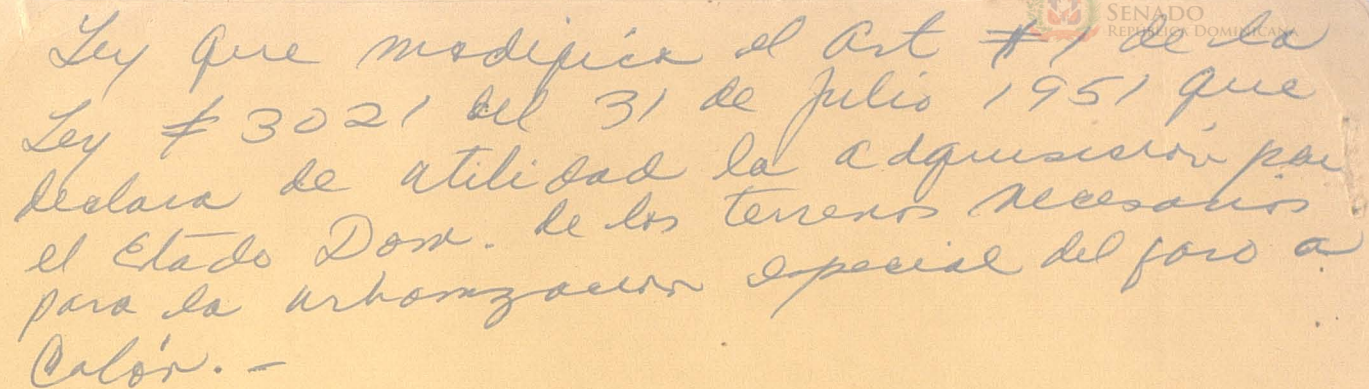 SENADO
REPÚBLICA DOMINICANA
Ley que modifica el Art #1 de la
Ley # 3021 del 31 de Julio 1951 que
declara de utilidad la adquisición por
el Estado Dom. de los terrenos necesarios
para la urbanización especial del faro a
Colón. -